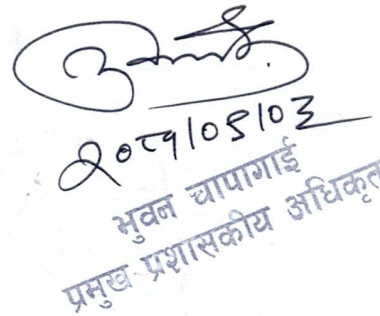 २०८१/०९/०३
भुवन चापागाई
प्रमुख प्रशासकीय अधिकृत